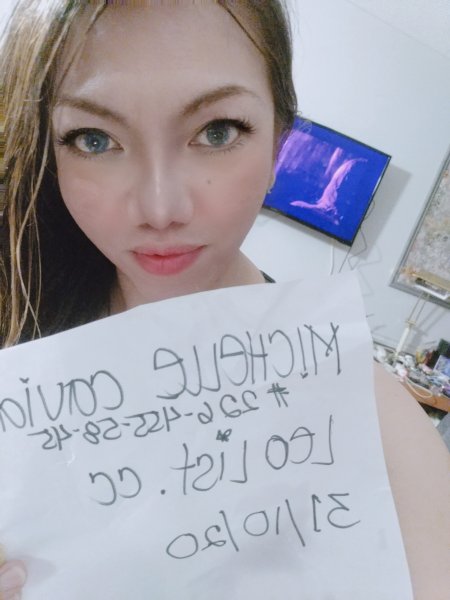 MICHELLE
# 226-455-58-45
*
LEOLIST.CC
31/10/20